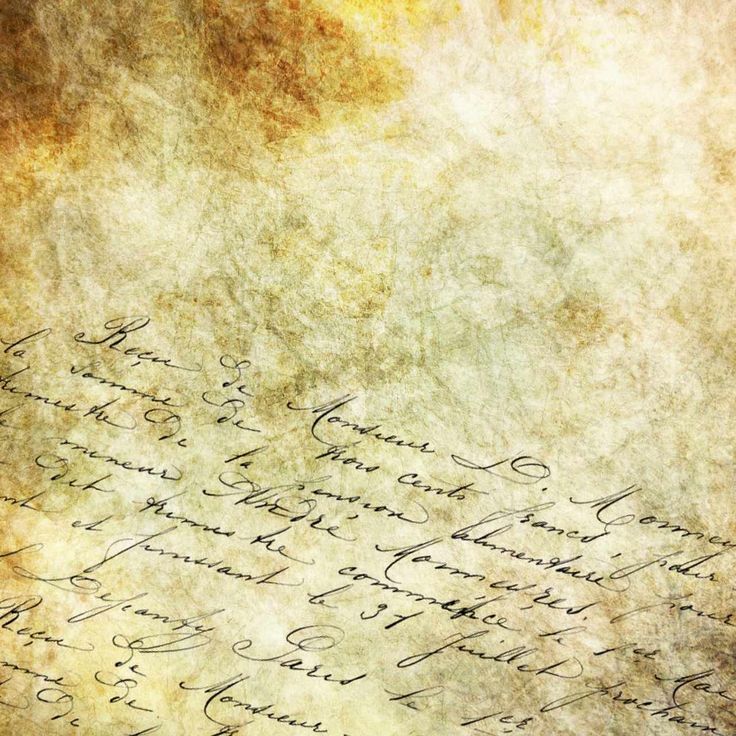 Reçu de Monsieur D.
la somme de trois cents francs, pour
trimestre de la pension alimentaire pour
mineur André
dit trimestre commence le 1er Mai
et finissant le 31 Juillet prochain
Paris le 1er
Reçu de Monsieur
de